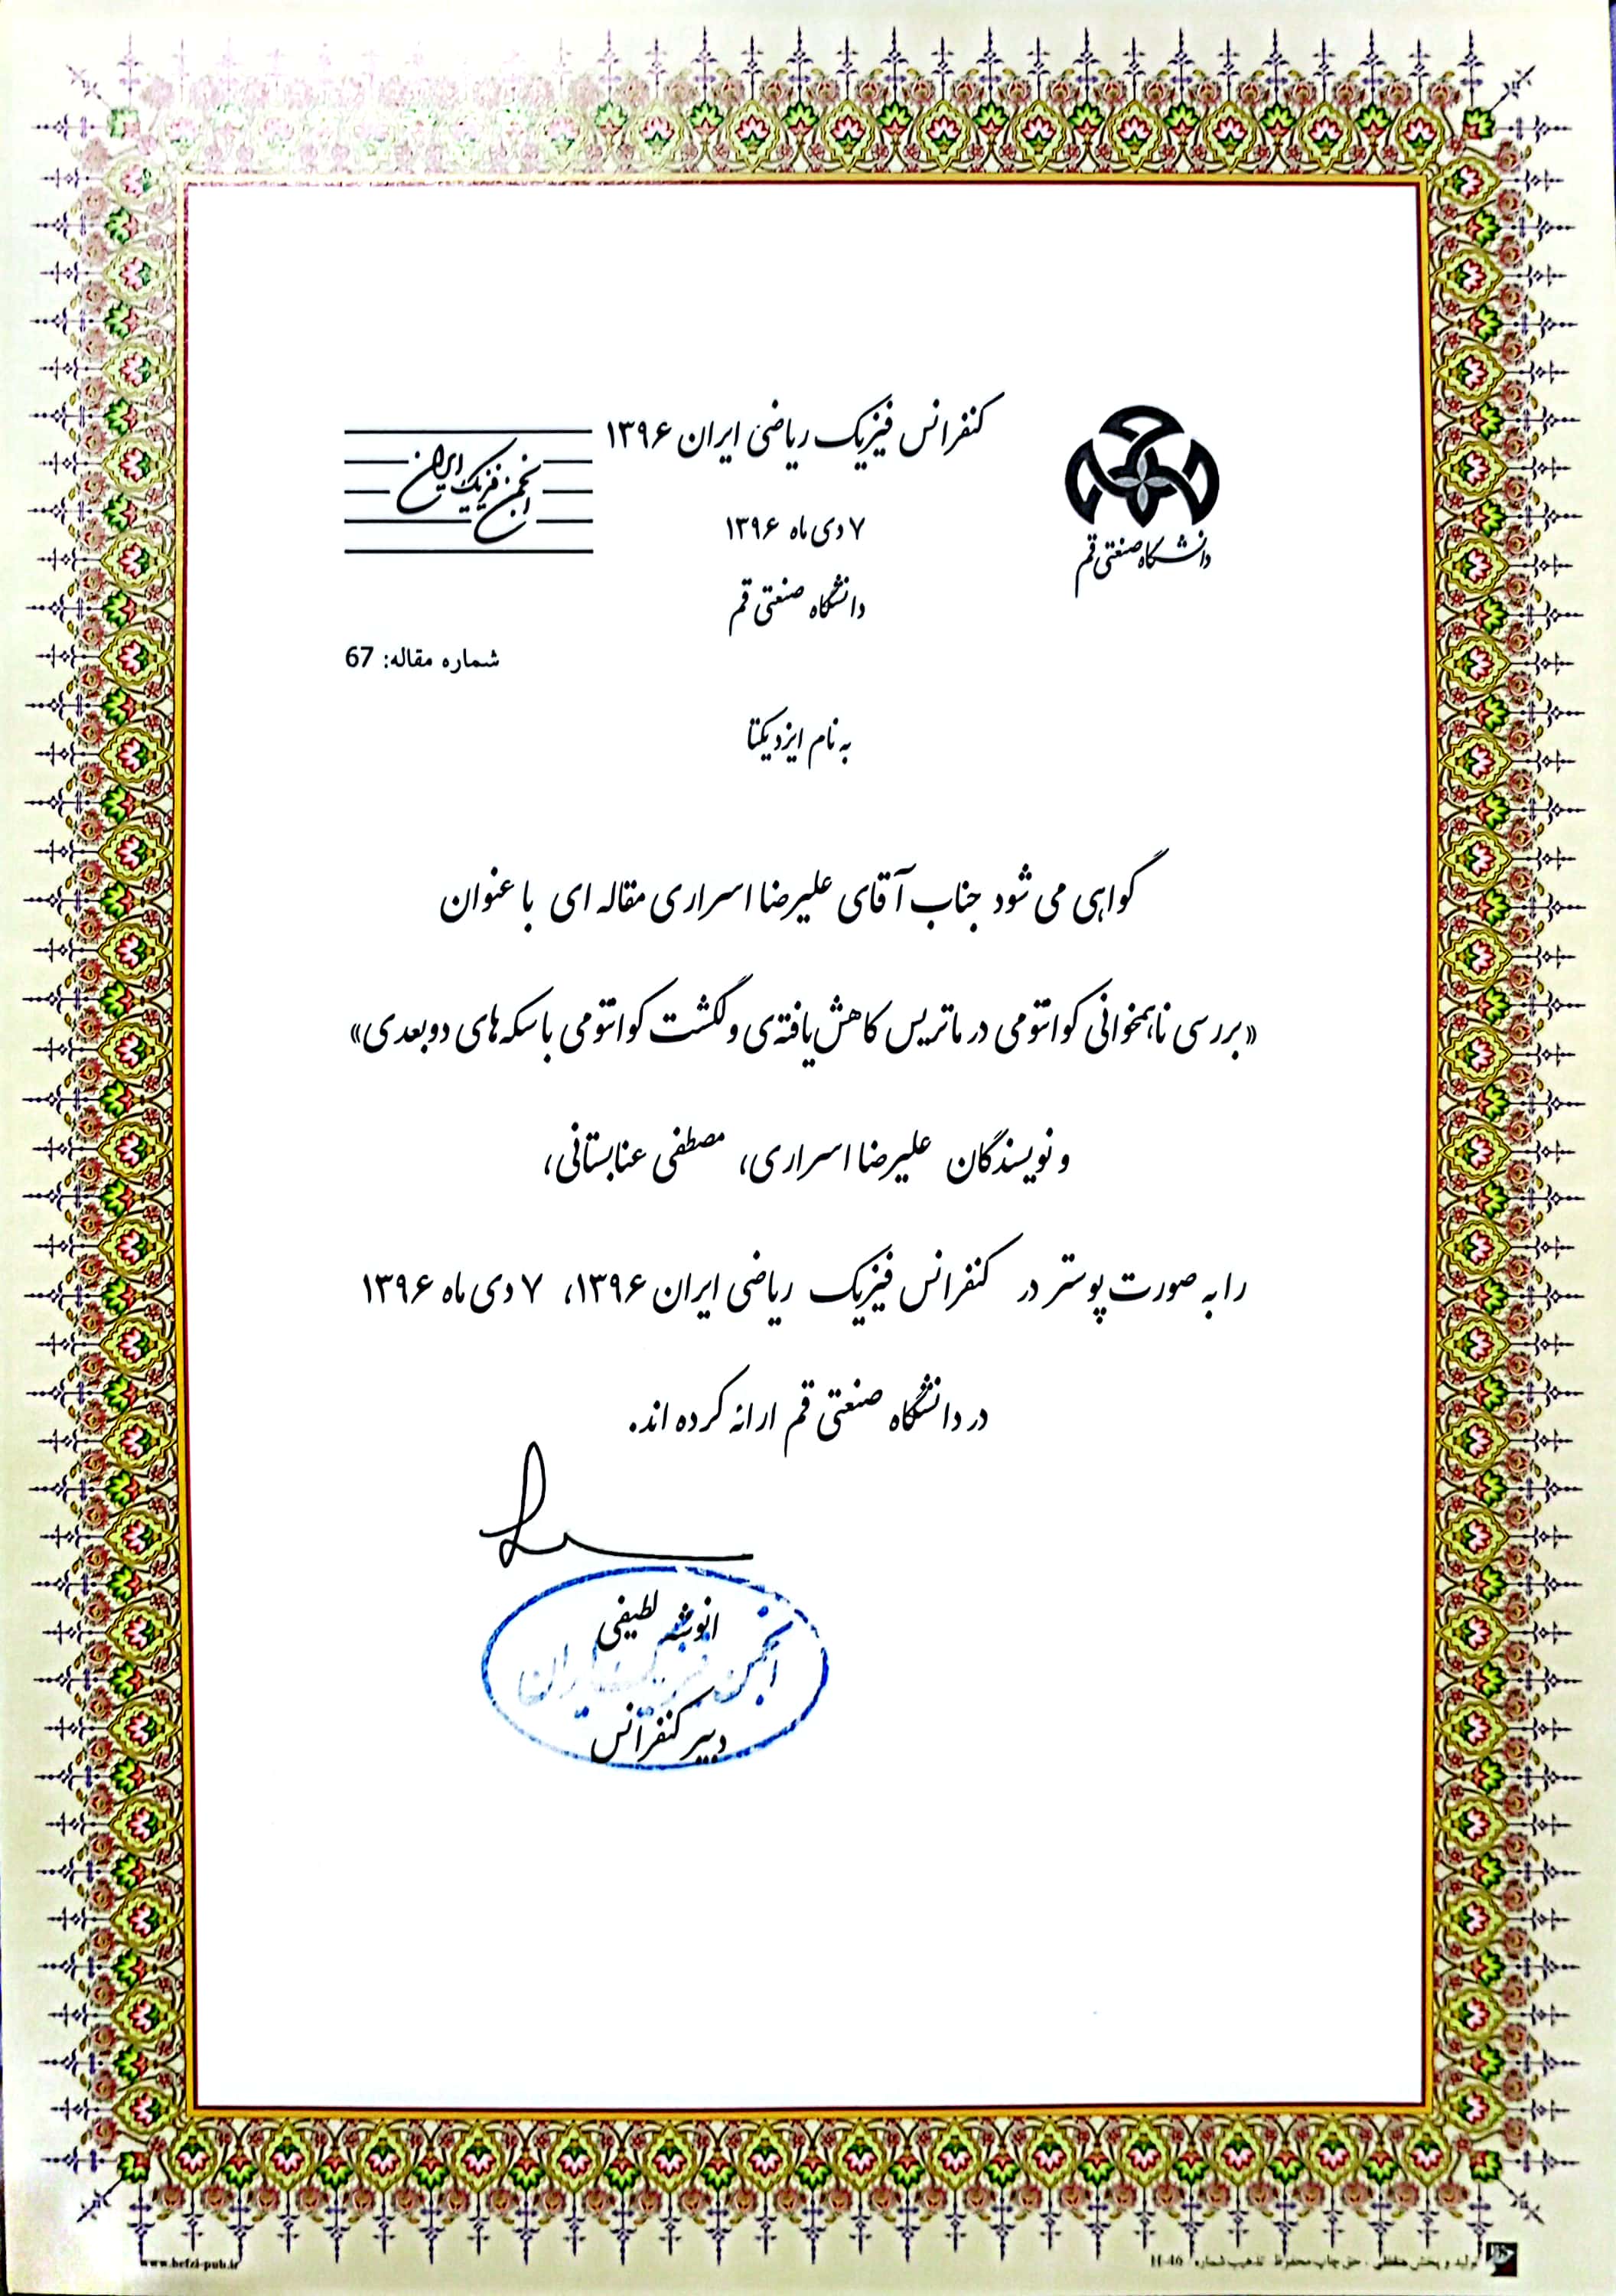 کنفرانس فیزیک ریاضی ایران ۱۳۹۶
انجمن فیزیک ایران
دانشگاه صنعتی قم
۷ دی ماه ۱۳۹۶
دانشگاه صنعتی قم
شماره مقاله: 67
به نام ایزد یکتا
گواهی می شود جناب آقای علیرضا اسراری مقاله ای با عنوان
«بررسی ناهمخوانی کوانتومی در ماتریس کاهش‌یافته‌ی ولگشت کوانتومی با سکه‌های دوبعدی»
و نویسندگان علیرضا اسراری، مصطفی عنابستانی،
را به صورت پوستر در کنفرانس فیزیک ریاضی ایران ۱۳۹۶، ۷ دی ماه ۱۳۹۶
در دانشگاه صنعتی قم ارائه کرده اند.
انوشه لطیفی
انجمن فیزیک ایران
دبیر کنفرانس
www.hefzi-pub.ir
تولید و پخش حفظی . حق چاپ محفوظ تذهیب شماره H-46